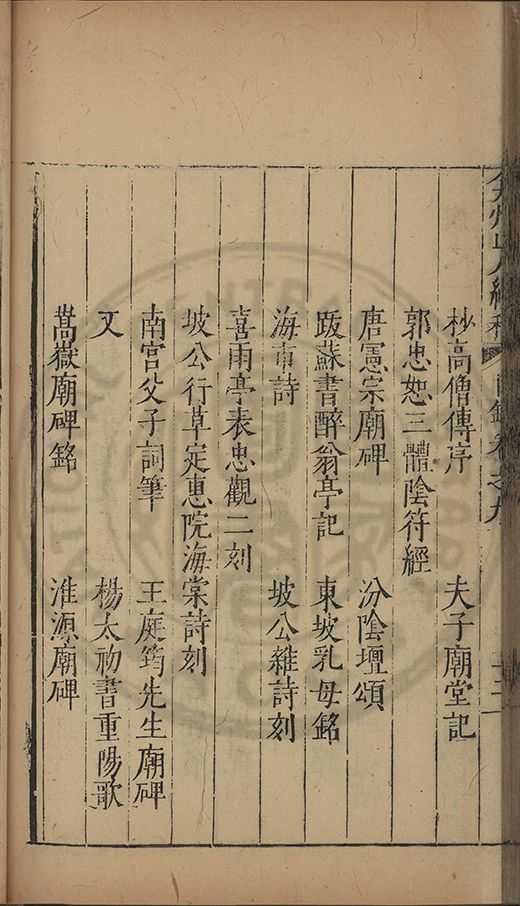 弇州山人續稿 目錄卷之九
杪高僧傳序 夫子廟堂記
郭忠恕三體陰符經
唐憲宗廟碑 汾陰壇頌
跋蘇書醉翁亭記 東坡乳母銘
海市詩 坡公雜詩刻
喜雨亭表忠觀二刻
坡公行草定惠院海棠詩刻
南宮父子詞筆 王庭筠先生廟碑
又 楊太初書重陽歌
嵩嶽廟碑銘 淮源廟碑